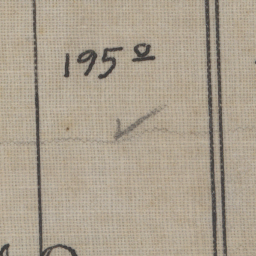 195º